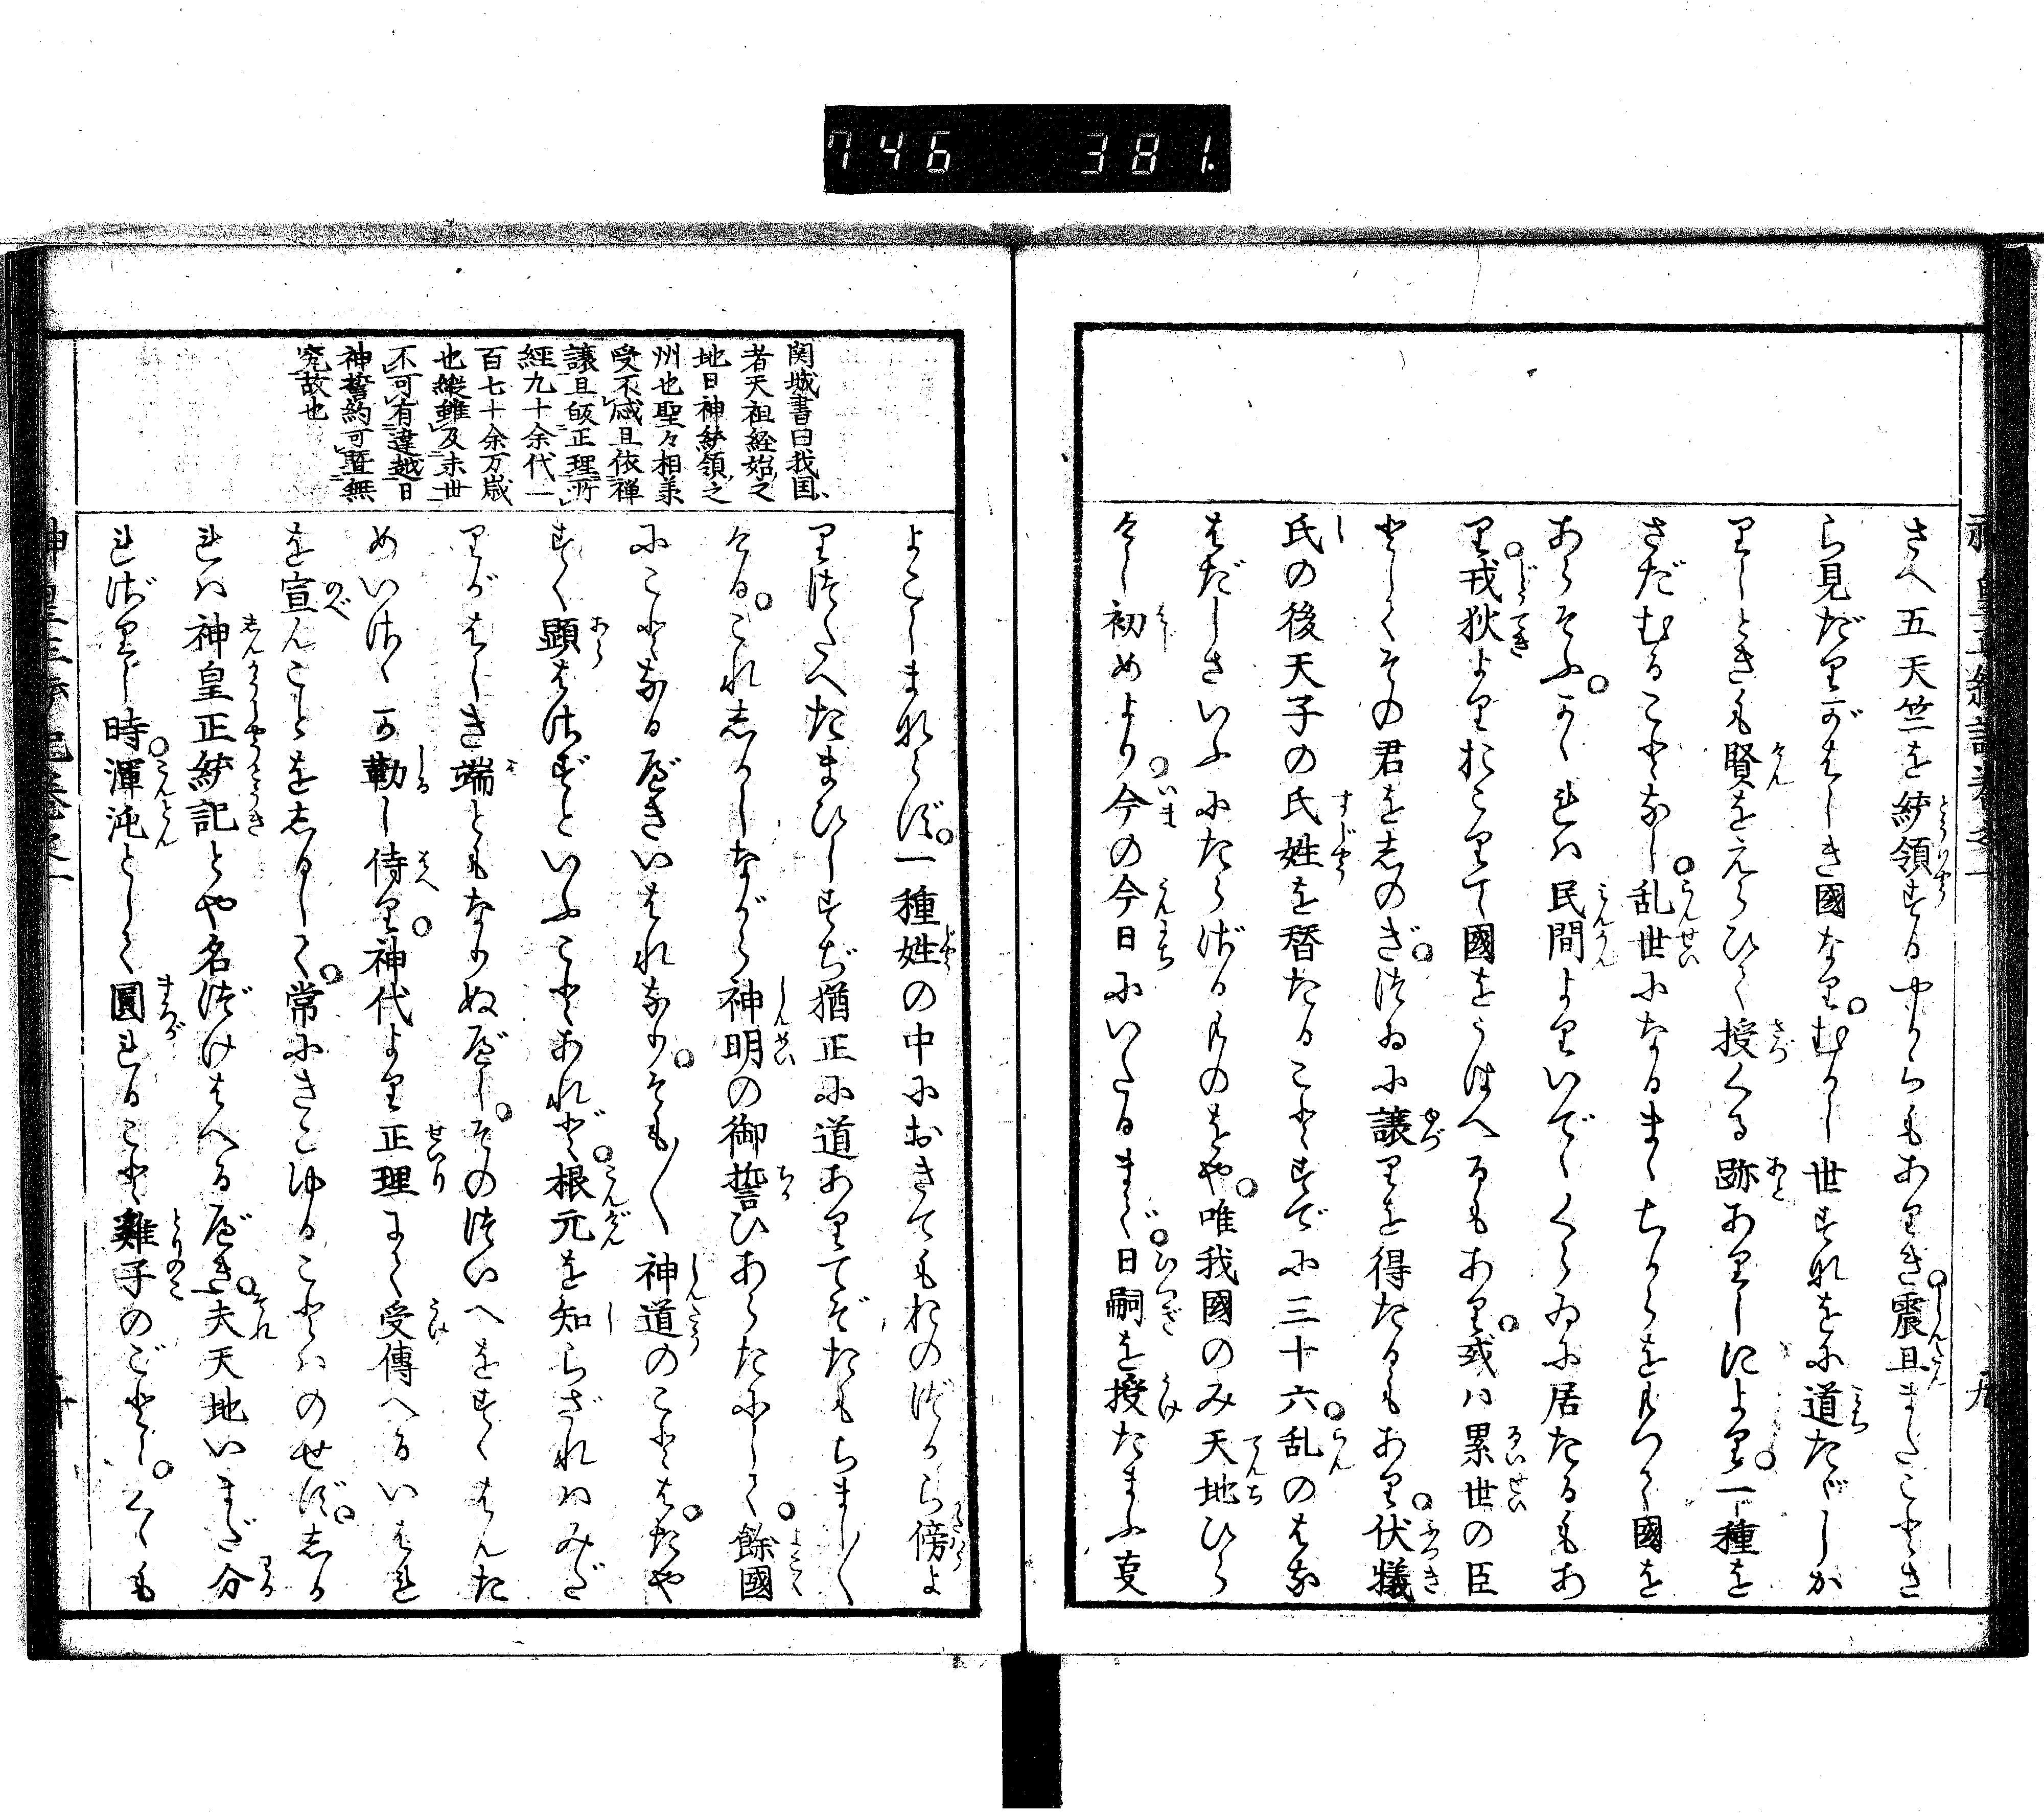 746 381.
さへ五天竺を統領するやからもありき震旦またことさ
ら見だりがはしき國なりむかし世すなをに道たゞしか
りしときも賢をえらひて授くる跡ありしによりて一種を
さだむることなし乱世になるまゝちからをもつて國を
あらそふかゝれは民間よりいでゝくらゐに居たるもあ
り戎狄よりおこりて國をうばへるもあり或は累世の臣
としてその君をしのぎつゐに譲りを得たるもあり伏犠
氏の後天子の氏姓を替たることすでに三十六乱のはな
はだしさいふにたらざるものをや唯我國のみ天地ひら
けし初めより今の今日にいたるまで日嗣を授たまふ叓
よこしまならず一種姓の中におきてもおのづから傍よ
りつたへたまひしすぢ猶正に道ありてぞたもちまし〱
ける これしかしながら神明の御誓ひあらたにして餘國
にことなるべきいはれなりそも〱神道のことはたや
すく顕はさずといふことあれど根元を知らざれはみだ
りがはしき端ともなりぬべしそのついへをすくはんた
めいさゝか勒し侍り神代より正理にて受傳へるいはれ
を宣んことをしるして常にきこゆることはのせずしか
れは神皇正統記とや名づけはへるべき夫天地いまだ分
れざりし時渾沌としてて圓れること雞子のごとしくゝも
関城書曰我国
者天祖経始之
地日神統領之
州也聖々相兼
受不忒且依禅
譲且皈正理所
經九十余代一
百七十余万歳
也縦雖及末世
不可有違越日
神誓約可曁無
究故也